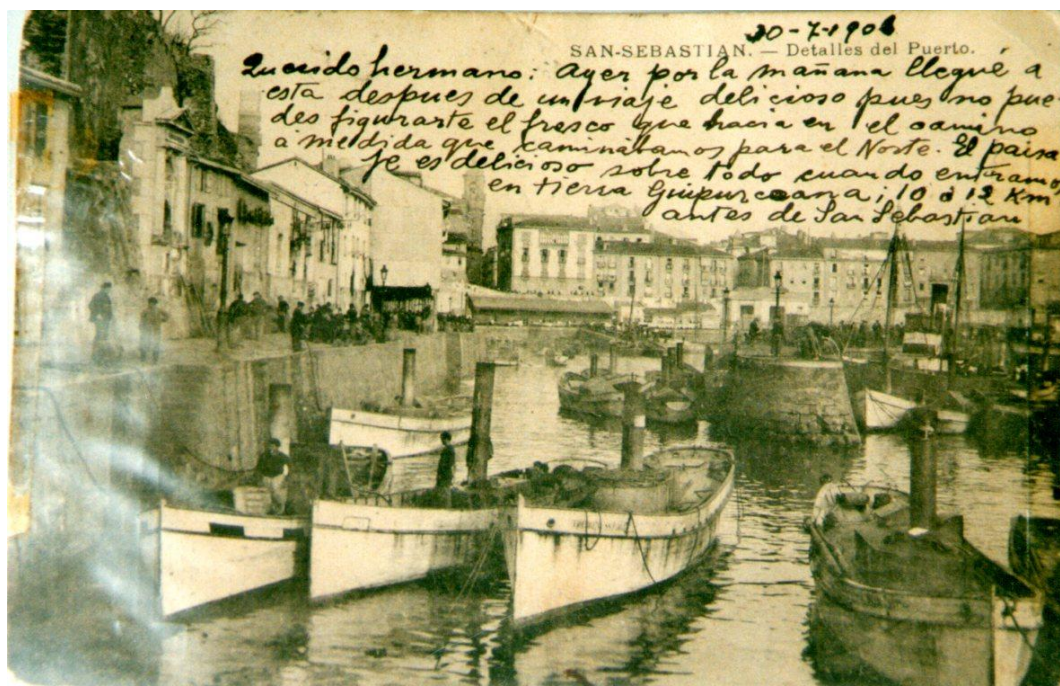 30-7-1906
SAN-SEBASTIAN. — Detalles del Puerto.
Querido hermano: Ayer por la mañana llegué a
esta despues de un viaje delicioso pues no pue
des figurarte el fresco que hacia en el camino
a medida que caminabamos para el Norte. El paisa
je es delicioso sobre todo cuando entramo
en tierra Guipuzcoana; 10 ó 12 Km
antes de San Sebastian